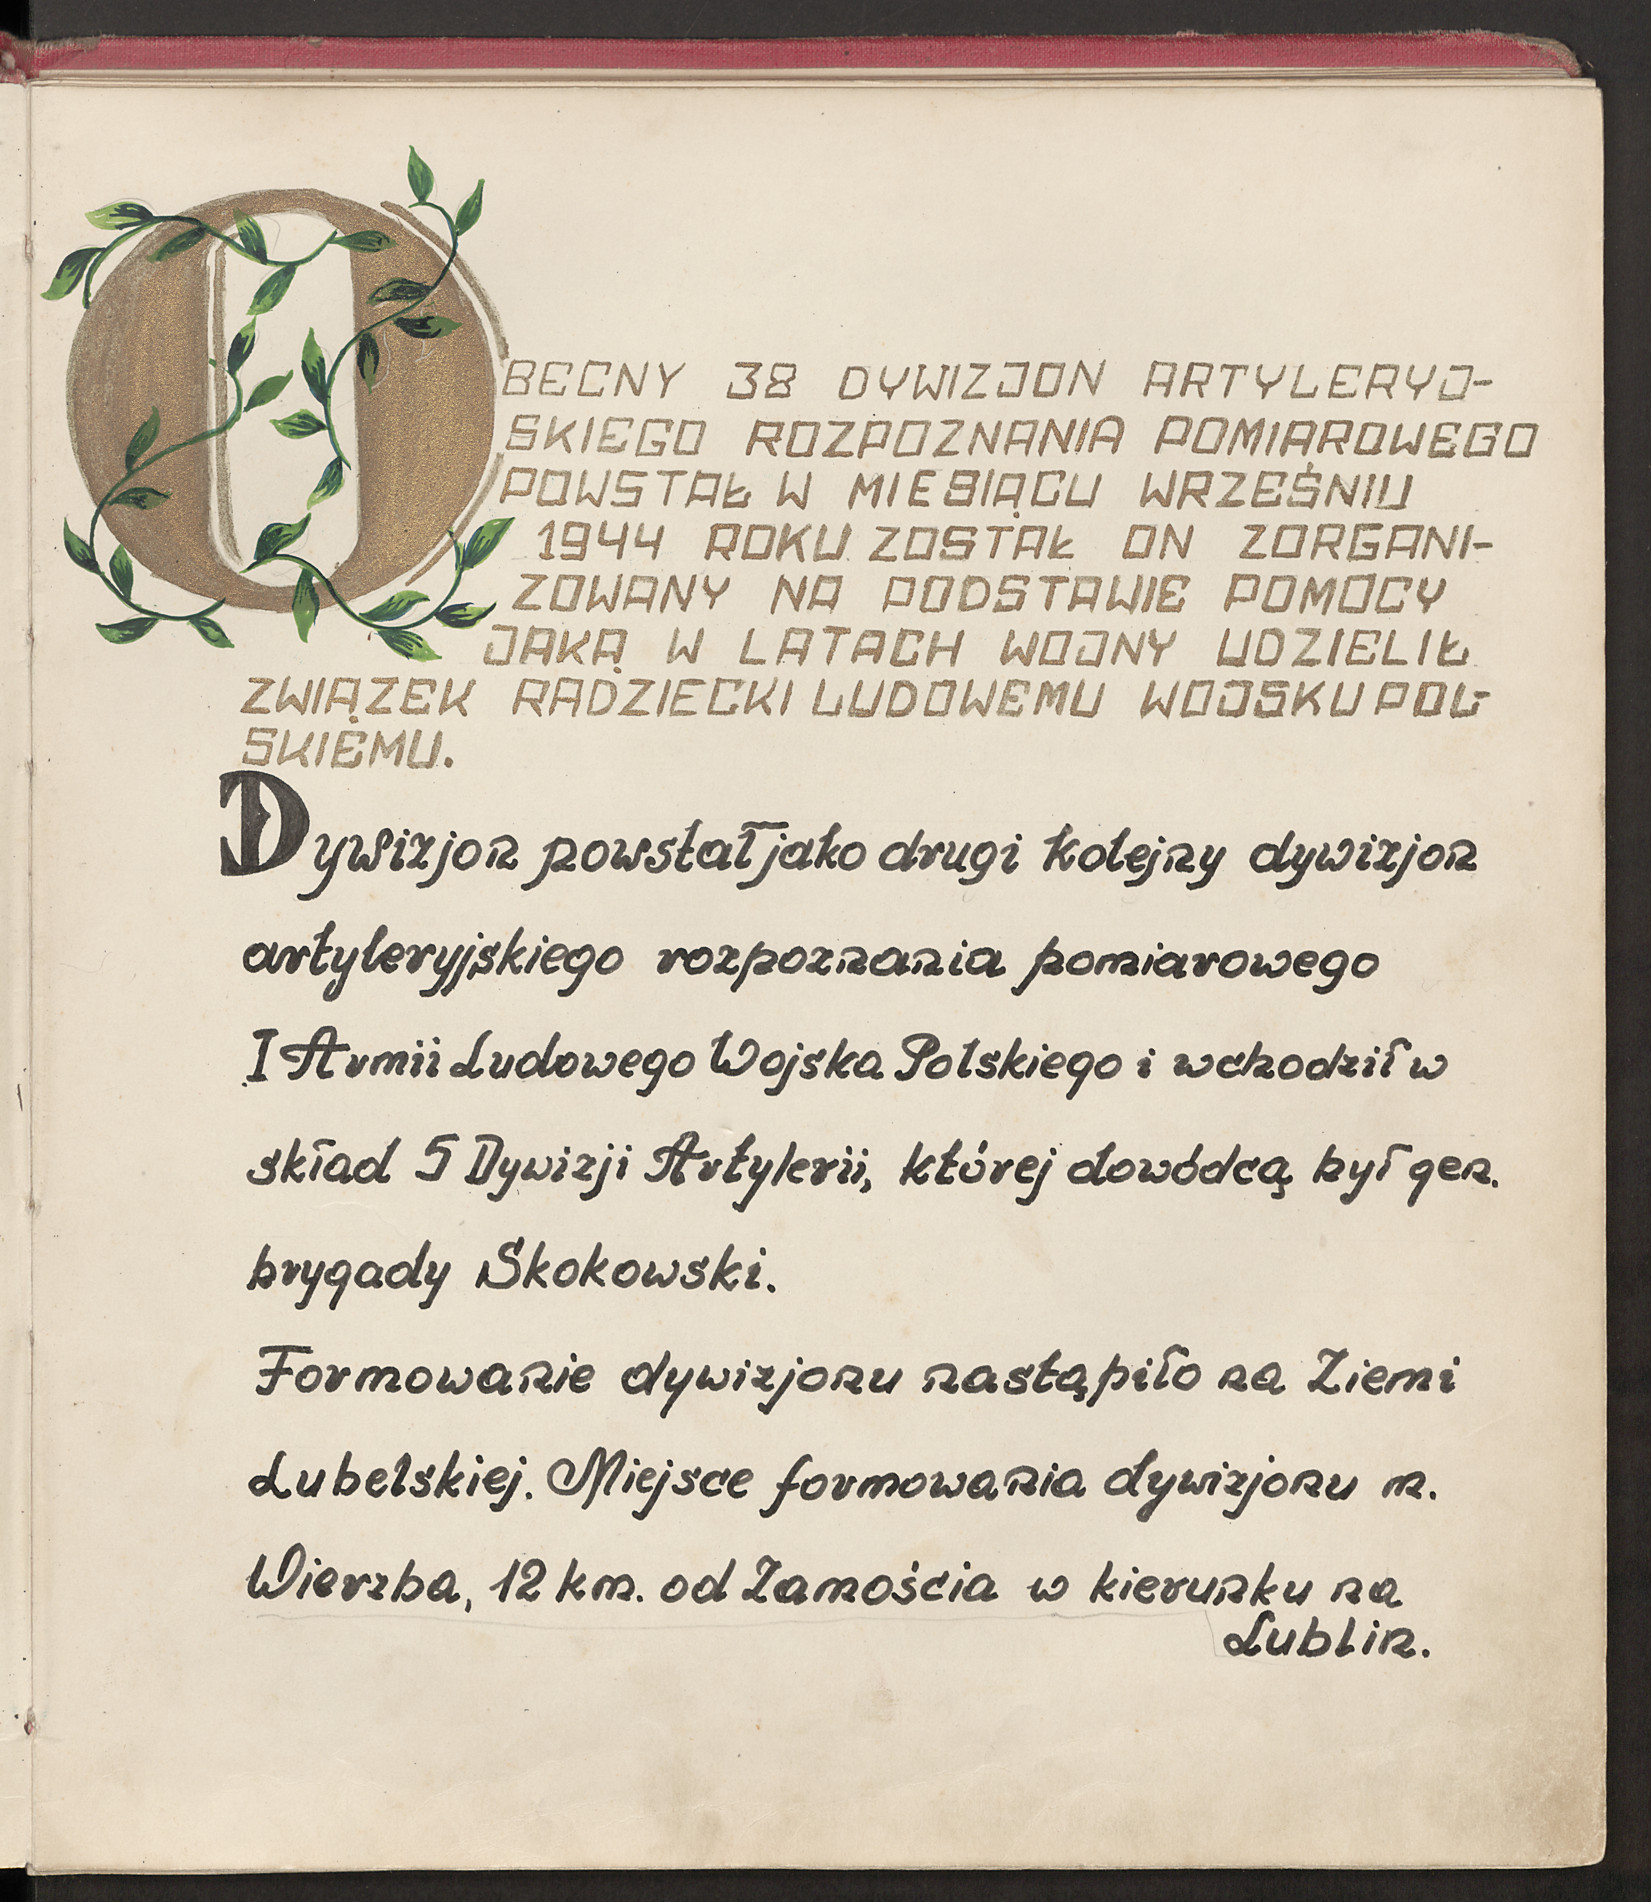 OBECNY 38 DYWIZJON ARTYLERYJ-
SKIEGO ROZPOZNANIA POMIAROWEGO
POWSTAŁ W MIESIĄCU WRZEŚNIU
1944 ROKU ZOSTAŁ ON ZORGANI-
ZOWANY NA PODSTAWIE POMOCY
JAKĄ W LATACH WOJNY UDZIELIŁ
ZWIĄZEK RADZIECKI LUDOWEMU WOJSKU POL-
SKIEMU.
Dywizjon powstał jako drugi kolejny dywizjon
artyleryjskiego rozpoznania pomiarowego
I Armii Ludowego Wojska Polskiego i wchodził w
skład 5 Dywizji Artylerii, której dowódcą był gen.
brygady Skokowski.
Formowanie dywizjonu nastąpiło na Ziemi
Lubelskiej. Miejsce formowania dywizjonu m.
Wierzba, 12 km. od Zamościa w kierunku na
Lublin.